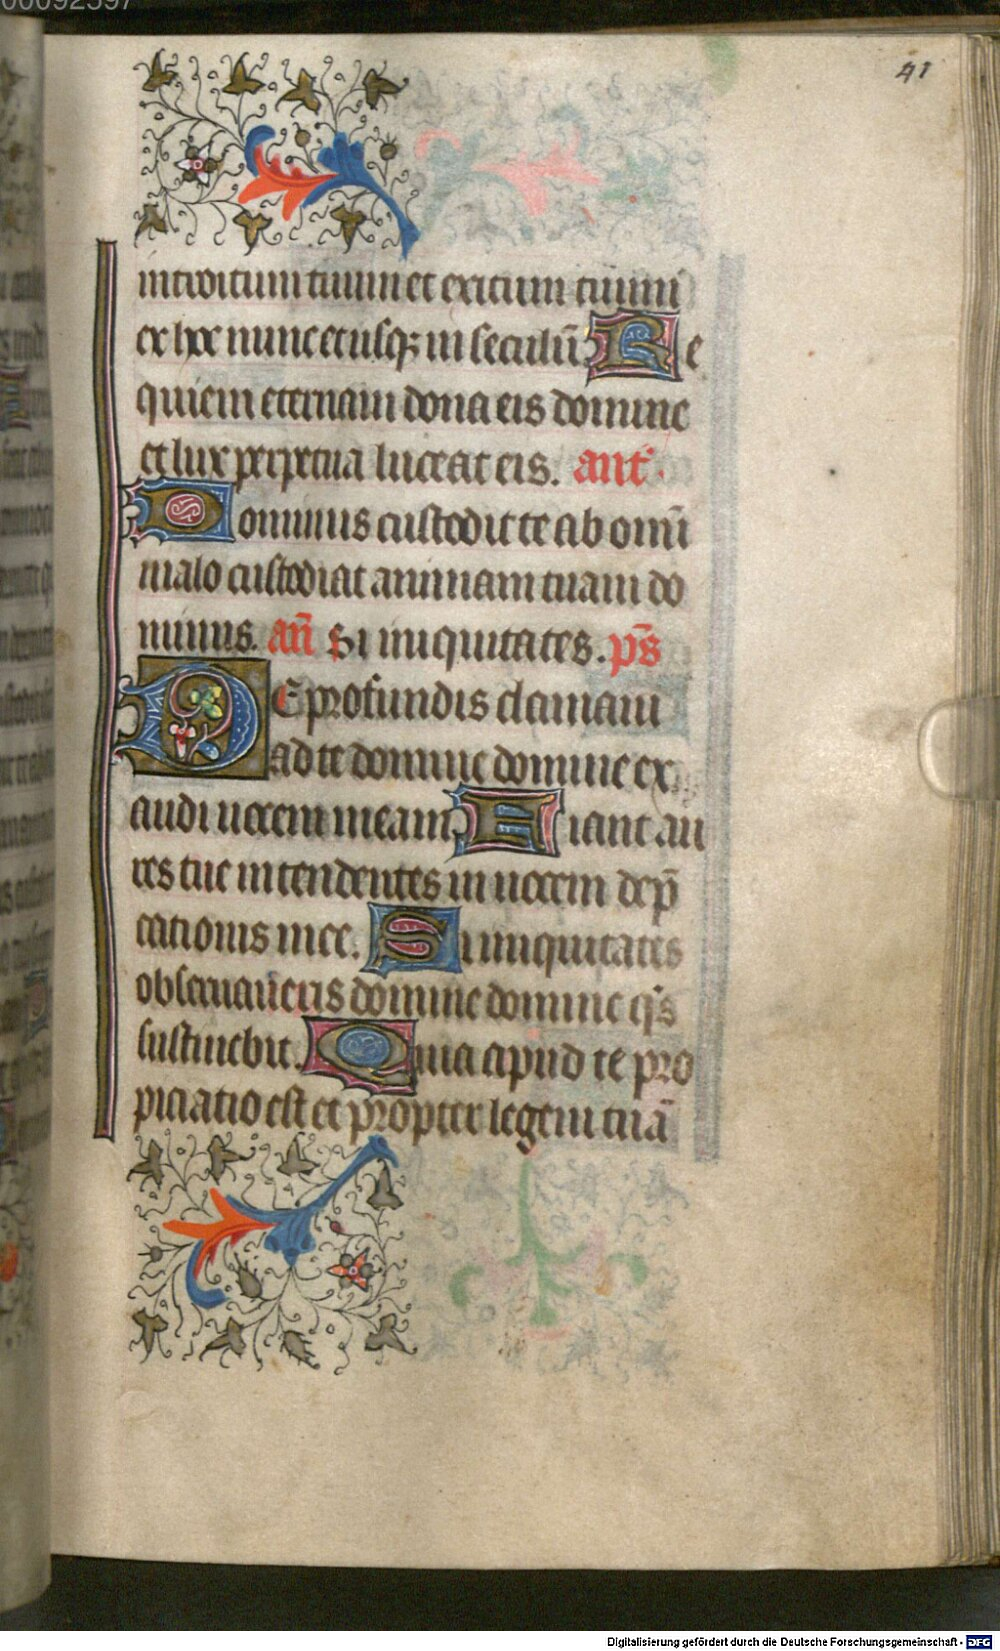 00092597
41
introitum tuum et exitum tuum
ex hoc nunc et usq; in seculū Re
quiem eternam dona eis domine
et lux perpetua luceat eis. ant.
Dominus custodit te ab omī
malo custodiat animam tuam do
minus. an̄ Si iniquitates. ps̄
De profundis clamaui
ad te domine domine ex
audi uocem meam Fiant au
res tue intendentes in uocem dep̄
cationis mee. Si iniquitates
obseruaueris domine domine q's
sustinebit. Quia apud te pro
piciatio est et propter legem tuā
Digitalisierung gefördert durch die Deutsche Forschungsgemeinschaft - DFG